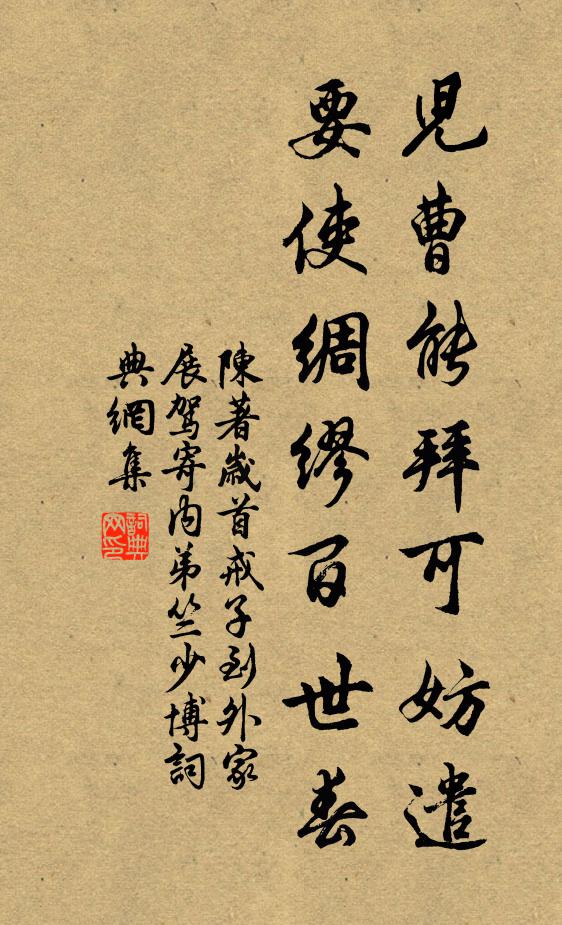 兒曹能拜可妨遣
要使綢繆百世春
陳著歲首戒子到外家
展駕寄內弟竺少博詞
典網集
詞典網印